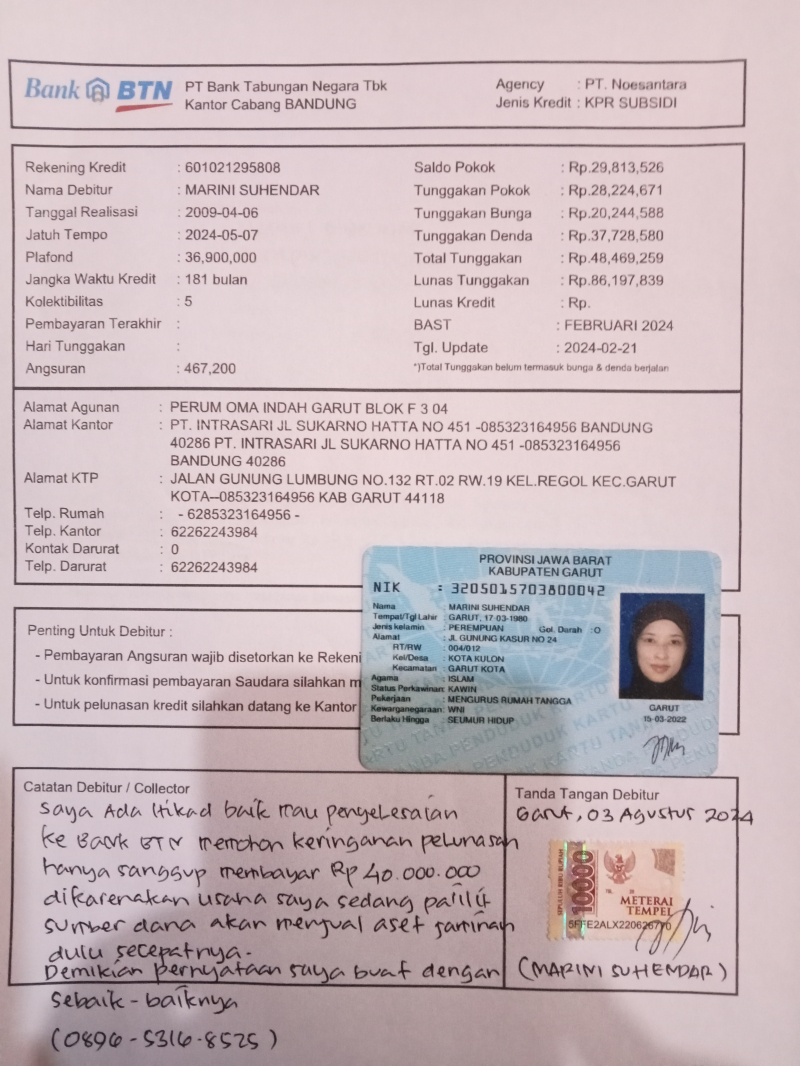 Bank BTN
PT Bank Tabungan Negara Tbk
Kantor Cabang BANDUNG
Agency : PT. Noesantara
Jenis Kredit : KPR SUBSIDI
Rekening Kredit : 601021295808
Nama Debitur : MARINI SUHENDAR
Tanggal Realisasi : 2009-04-06
Jatuh Tempo : 2024-05-07
Plafond : 36,900,000
Jangka Waktu Kredit : 181 bulan
Kolektibilitas : 5
Pembayaran Terakhir :
Hari Tunggakan :
Angsuran : 467,200
Saldo Pokok : Rp.29,813,526
Tunggakan Pokok : Rp.28,224,671
Tunggakan Bunga : Rp.20,244,588
Tunggakan Denda : Rp.37,728,580
Total Tunggakan : Rp.48,469,259
Lunas Tunggakan : Rp.86,197,839
Lunas Kredit : Rp.
BAST : FEBRUARI 2024
Tgl. Update : 2024-02-21
*)Total Tunggakan belum termasuk bunga & denda berjalan
Alamat Agunan : PERUM OMA INDAH GARUT BLOK F 3 04
Alamat Kantor : PT. INTRASARI JL SUKARNO HATTA NO 451 -085323164956 BANDUNG
40286 PT. INTRASARI JL SUKARNO HATTA NO 451 -085323164956
BANDUNG 40286
Alamat KTP : JALAN GUNUNG LUMBUNG NO.132 RT.02 RW.19 KEL.REGOL KEC.GARUT
KOTA--085323164956 KAB GARUT 44118
Telp. Rumah : - 6285323164956 -
Telp. Kantor : 62262243984
Kontak Darurat : 0
Telp. Darurat : 62262243984
PROVINSI JAWA BARAT
KABUPATEN GARUT
NIK : 3205015703800042
Nama : MARINI SUHENDAR
Tempat/Tgl Lahir : GARUT, 17-03-1980
Jenis kelamin : PEREMPUAN Gol. Darah : O
Alamat : JL GUNUNG KASUR NO 24
RT/RW : 004/012
Kel/Desa : KOTA KULON
Kecamatan : GARUT KOTA
Agama : ISLAM
Status Perkawinan: KAWIN
Pekerjaan : MENGURUS RUMAH TANGGA
Kewarganegaraan: WNI
Berlaku Hingga : SEUMUR HIDUP
GARUT
15-03-2022
Penting Untuk Debitur :
- Pembayaran Angsuran wajib disetorkan ke Rekeni
- Untuk konfirmasi pembayaran Saudara silahkan m
- Untuk pelunasan kredit silahkan datang ke Kantor
Catatan Debitur / Collector
Saya Ada Itikad baik mau penyelesaian
ke Bank BTN memohon keringanan pelunasan
hanya sanggup membayar Rp 40.000.000
dikarenakan usaha saya sedang pailit
sumber dana akan menjual aset jaminan
dulu secepatnya.
Demikian pernyataan saya buat dengan
sebaik-baiknya
(0896-5316-8525)
Tanda Tangan Debitur
Garut, 03 Agustus 2024
SEPULUH RIBU RUPIAH
10000
METERAI
TEMPEL
(MARINI SUHENDAR)